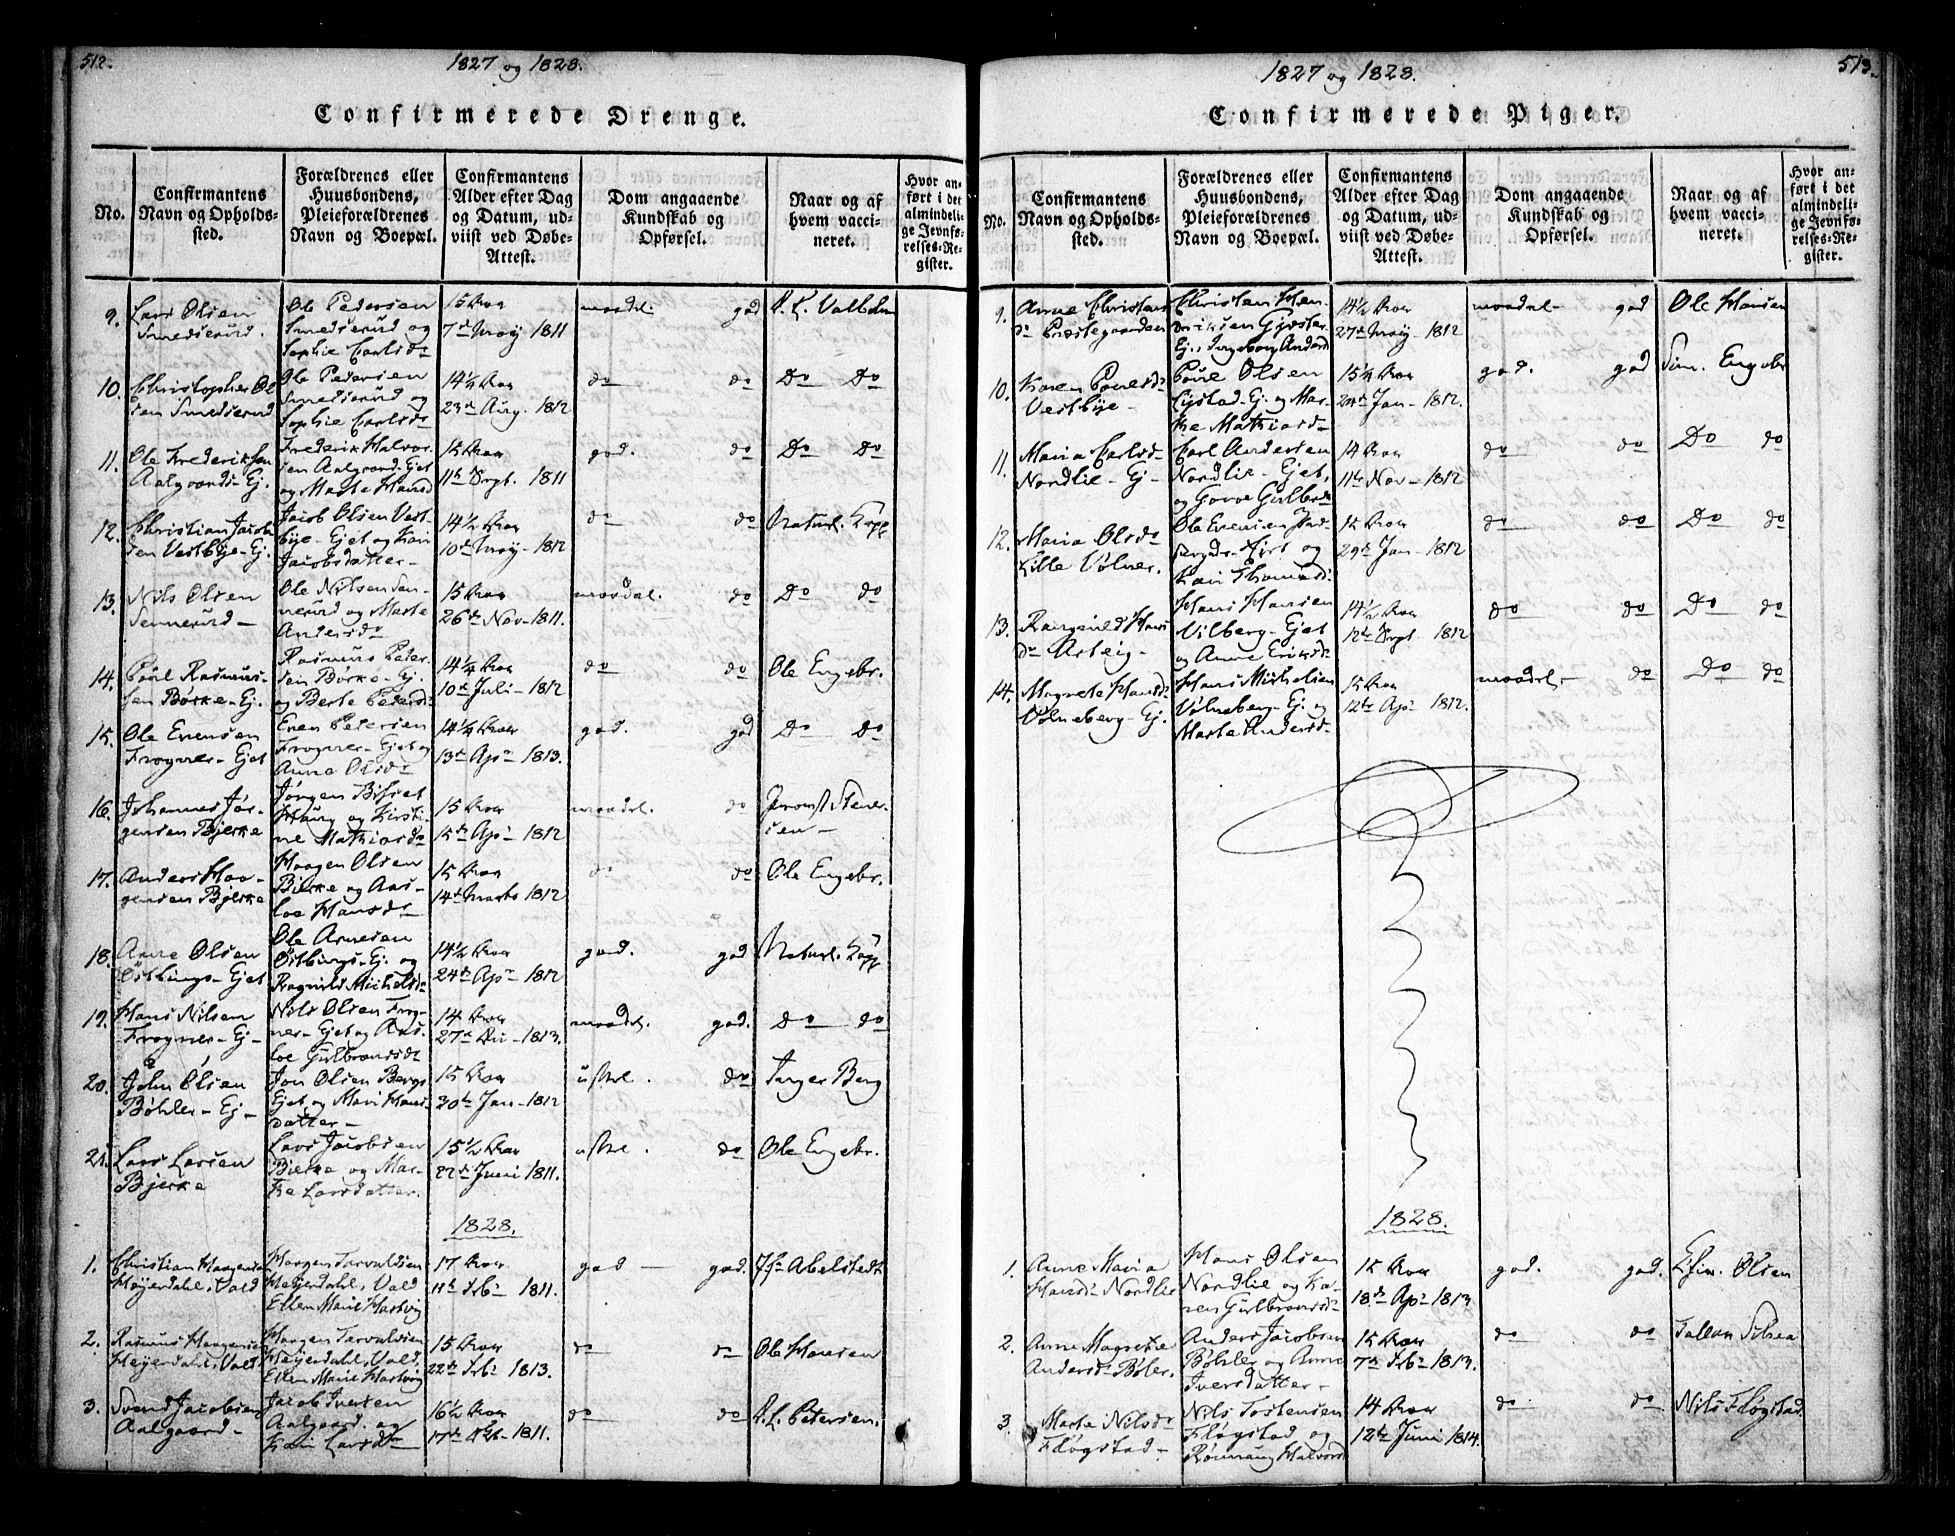 512.
1827 og 1828.
Confirmerede Drenge.
No.
Confirmantens
Navn og Opholds-
sted.
Forældrenes eller
Huusbondens,
Pleieforældrenes
Navn og Boepæl.
Confirmantens
Alder efter Dag
og Datum, ud-
viist ved Døbe-
Attest.
Dom angaaende
Kundskab og
Opførsel.
Naar og af
hvem vacci-
neret.
Hvor an-
ført i det
almindeli-
ge Jevnfø-
relses-Re-
gister.
9.
Lars Olsen
Smedserud.
Ole Pedersen
Smedserud og
Sophie Carlsdr
15 Aar
7de May 1811
maadel. god
10.
Christopher Ol
sen Smedserud
Ole Pedersen
Smedserud og
Sophie Carlsdr
14¼ Aar
23de Aug. 1812
do do
Do Do
11.
Ole Frederiksen
Aalgaards-Ej.
Frederik Halvor
sen Aalgaard-Ejet
og Marte Hansd
15 Aar
11te Sept. 1811
god. do
Do Do
12.
Christian Jacob
sen Vestbye-Ej.
Jacob Olsen Vest-
bye-Ejet og Kari
Jacobsdatter-
14½ Aar
10de May-1812
do do
Naturl. Kopp
13.
Nils Olsen
Sennerud-
Ole Nilsen Sen-
nerud og Marte
Andersdr
15 Aar
26de Nov-1811.
maadel. do
Do do
14.
Poul Rasmus-
sen Børke-Ej.
Rasmus Peder-
sen Børke-Ej.
og Berte Pedersd
14¼ Aar
10de Juli-1812
do do
Ole Engebr.
15.
Ole Evensen
Frogner-Ejet
Even Petersen
Frogner-Ejet og
Anne Olsdr
14¼ Aar
13de Apr 1813.
god. god
Do do
16.
Johannes Jør-
gensen Bjerke
Jørgen
Haug og Kirsti-
ne Mathiasdr
15 Aar
15de Apr 1812
maadel. do
17.
Anders Haa-
gensen Bjerke
Haagen Olsen
Bierke og Aas-
loe Hansdr
15 Aar
14de Marts 1812
do do
Ole Engebr.
18.
Arne Olsen
Østbings-Ejet
Ole Arnesen
Østbings-Ej. og
Ragnild Michelsdr
14½ Aar
24de Apr 1812
god. god
Naturl. Kopp
19.
Hans Nilsen
Frogner-Ej-
Nils Olsen Frog-
ner-Ejet og Aas-
loe Gulbransdr
14 Aar
27de 1813.
maadel. god.
Do do
20.
John Olsen
Bøhler-Ej-
Jon Olsen Bergs
Ejet og Mari Hans-
datter-
15 Aar
30te Jan-1812
do
Berg
21.
Lars Larsen
Bjerke
Lars Jacobsen
Bierke og Mar-
the Larsdatter.
15½ Aar
22de Juni 1811.
do
Ole Engebr.
1828.
1.
Christian Haagensen
Heyerdahl, Vald
Haagen Torvaldsen
Heyerdahl, Vald
Ellen Marie Hartvig
17 Aar
11te Feb. 1811.
god - god.
Abelstedt
2.
Rasmus Haagensen
Heyerdahl, Vald
Haagen Torvaldsen
Heyerdahl, Vald,
Ellen Marie Hartvig
15 Aar
22de Feb. 1813.
do do
Ole Hansen
3.
Svend Jacobsen
Aalgaard-
Jacob Iversen
Aalgaard og
Kari Larsdr
16½ Aar
17de 1811.
do do
Petersen.
513.
1827 og 1828.
Confirmerede Piger.
No.
Confirmantens
Navn og Opholds-
sted.
Forældrenes eller
Huusbondens,
Pleieforældrenes
Navn og Boepæl.
Confirmantens
Alder efter Dag
og Datum, ud-
viist ved Døbe-
Attest.
Dom angaaende
Kundskab og
Opførsel.
Naar og af
hvem vacci-
neret.
Hvor an-
ført i det
almindeli-
ge Jevnfø-
relses-Re-
gister.
9.
Anne Christens
dr Præstegaarden
Christen Hen-
driksen Gjester-
Ej., Ingeborg Andersd
14½ Aar
27de May 1812
maadel- god
Ole Hansen
10.
Karen Poulsdr
Vestbye-
Poul Olsen
Ej. og Mar-
the Mathiasdr
15¼ Aar
24de Jan-1812.
god. god
Sim. Engebr
11.
Maria Carlsdr
Nordlie-Ej-
Carl Andersen
Nordlie-Ejet,
og Goroe Gulbrdr
14 Aar
11te Nov-1812
do do
Do do
12.
Maria Olsdr
Lille Vølner.
Ole Evensen
og
Kari Thomasd.
15 Aar
29de Jan-1812
do do
Do do
13.
Rangnild Hans
dr Arteig-
Hans Hansen
Vilberg-Ejet
og Anne Eriksdr
14½ Aar
12te Sept-1812
do do
Do do
14.
Magnete Hansdr
Vølneberg-Ej.
Hans Michelsen
Vølneberg-Ej. og
Marte Andersd-
15 Aar
12te Apr 1812.
maadel- do
Do do
1828.
1.
Anne Maria
Hansdr Nordlie
Hans Olsen
Nordlie og Ka-
ren Gulbransdr
15 Aar
18de Apr 1813
god. god.
Olsen
2.
Anne Magrethe
Andersdr Bøler.
Anders Jacobsen
Bøhler og Anne
Iversdatter-
15 Aar
7de Feb. 1813.
do do
3.
Marte Nilsdr
Fløgstad-
Nils Tostensen
Fløgstad og
Rønnaug Halvorsd
14 Aar
12te Juni 1814.
do do
Nils Fløgstad